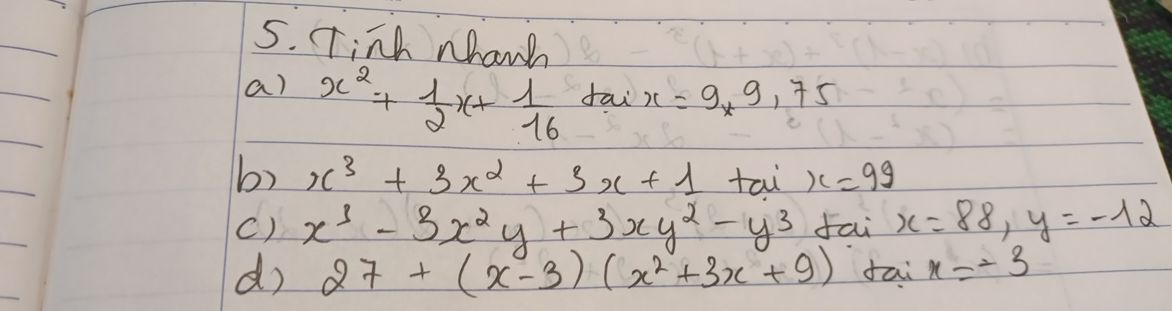 5. Tính nhanh
a) x² + 1/2 x + 1/16 tại x = 99,75
b) x³ + 3x² + 3x + 1 tại x = 99
c) x³ - 3x²y + 3xy² - y³ tại x = 88, y = -12
d) 27 + (x-3)(x²+3x+9) tại x = -3